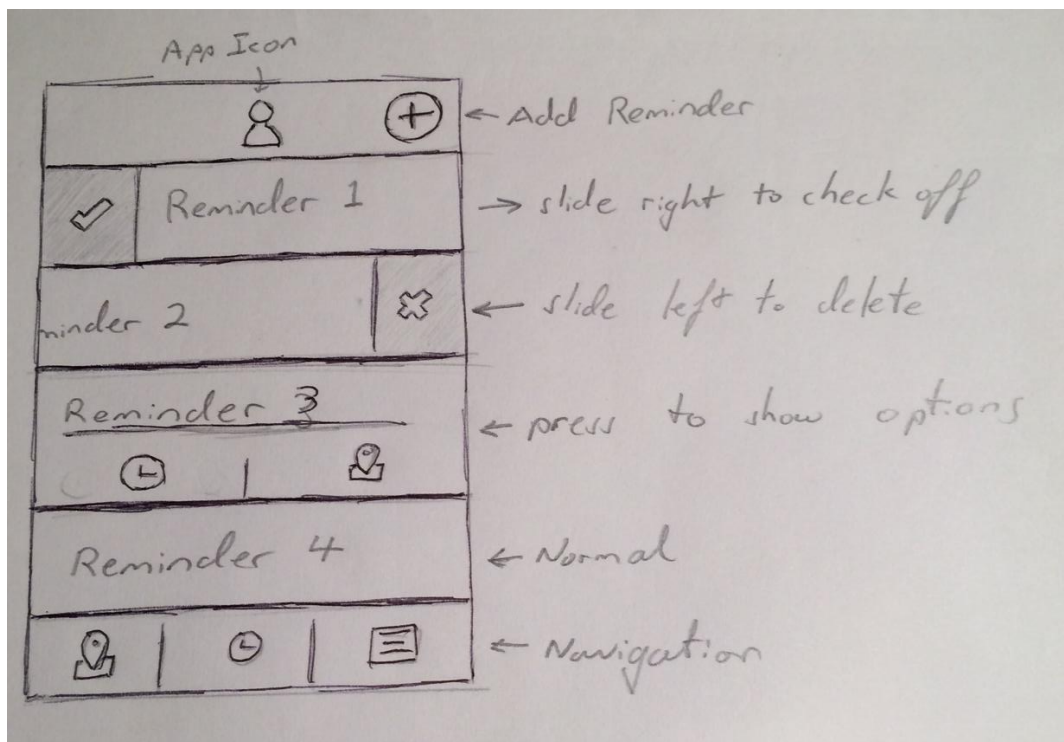 App Icon
Add Reminder
Reminder 1
slide right to check off
minder 2
slide left to delete
Reminder 3
press to show options
Reminder 4
Normal
Navigation